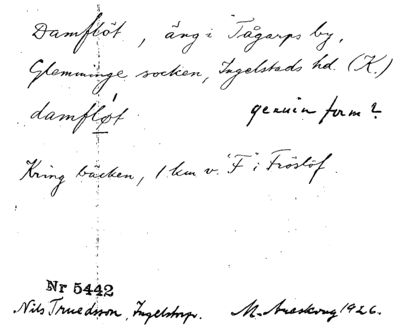 Damflöt, äng i Tågarps by,
Glemminge socken, Ingelstads hd. (K.)
damfløt genuin form?
Kring bäcken, 1 km v. "F" i Fröslöf.
Nr 5442
Nils Truedsson, Ingelstorp. M. Areskoug 1926.